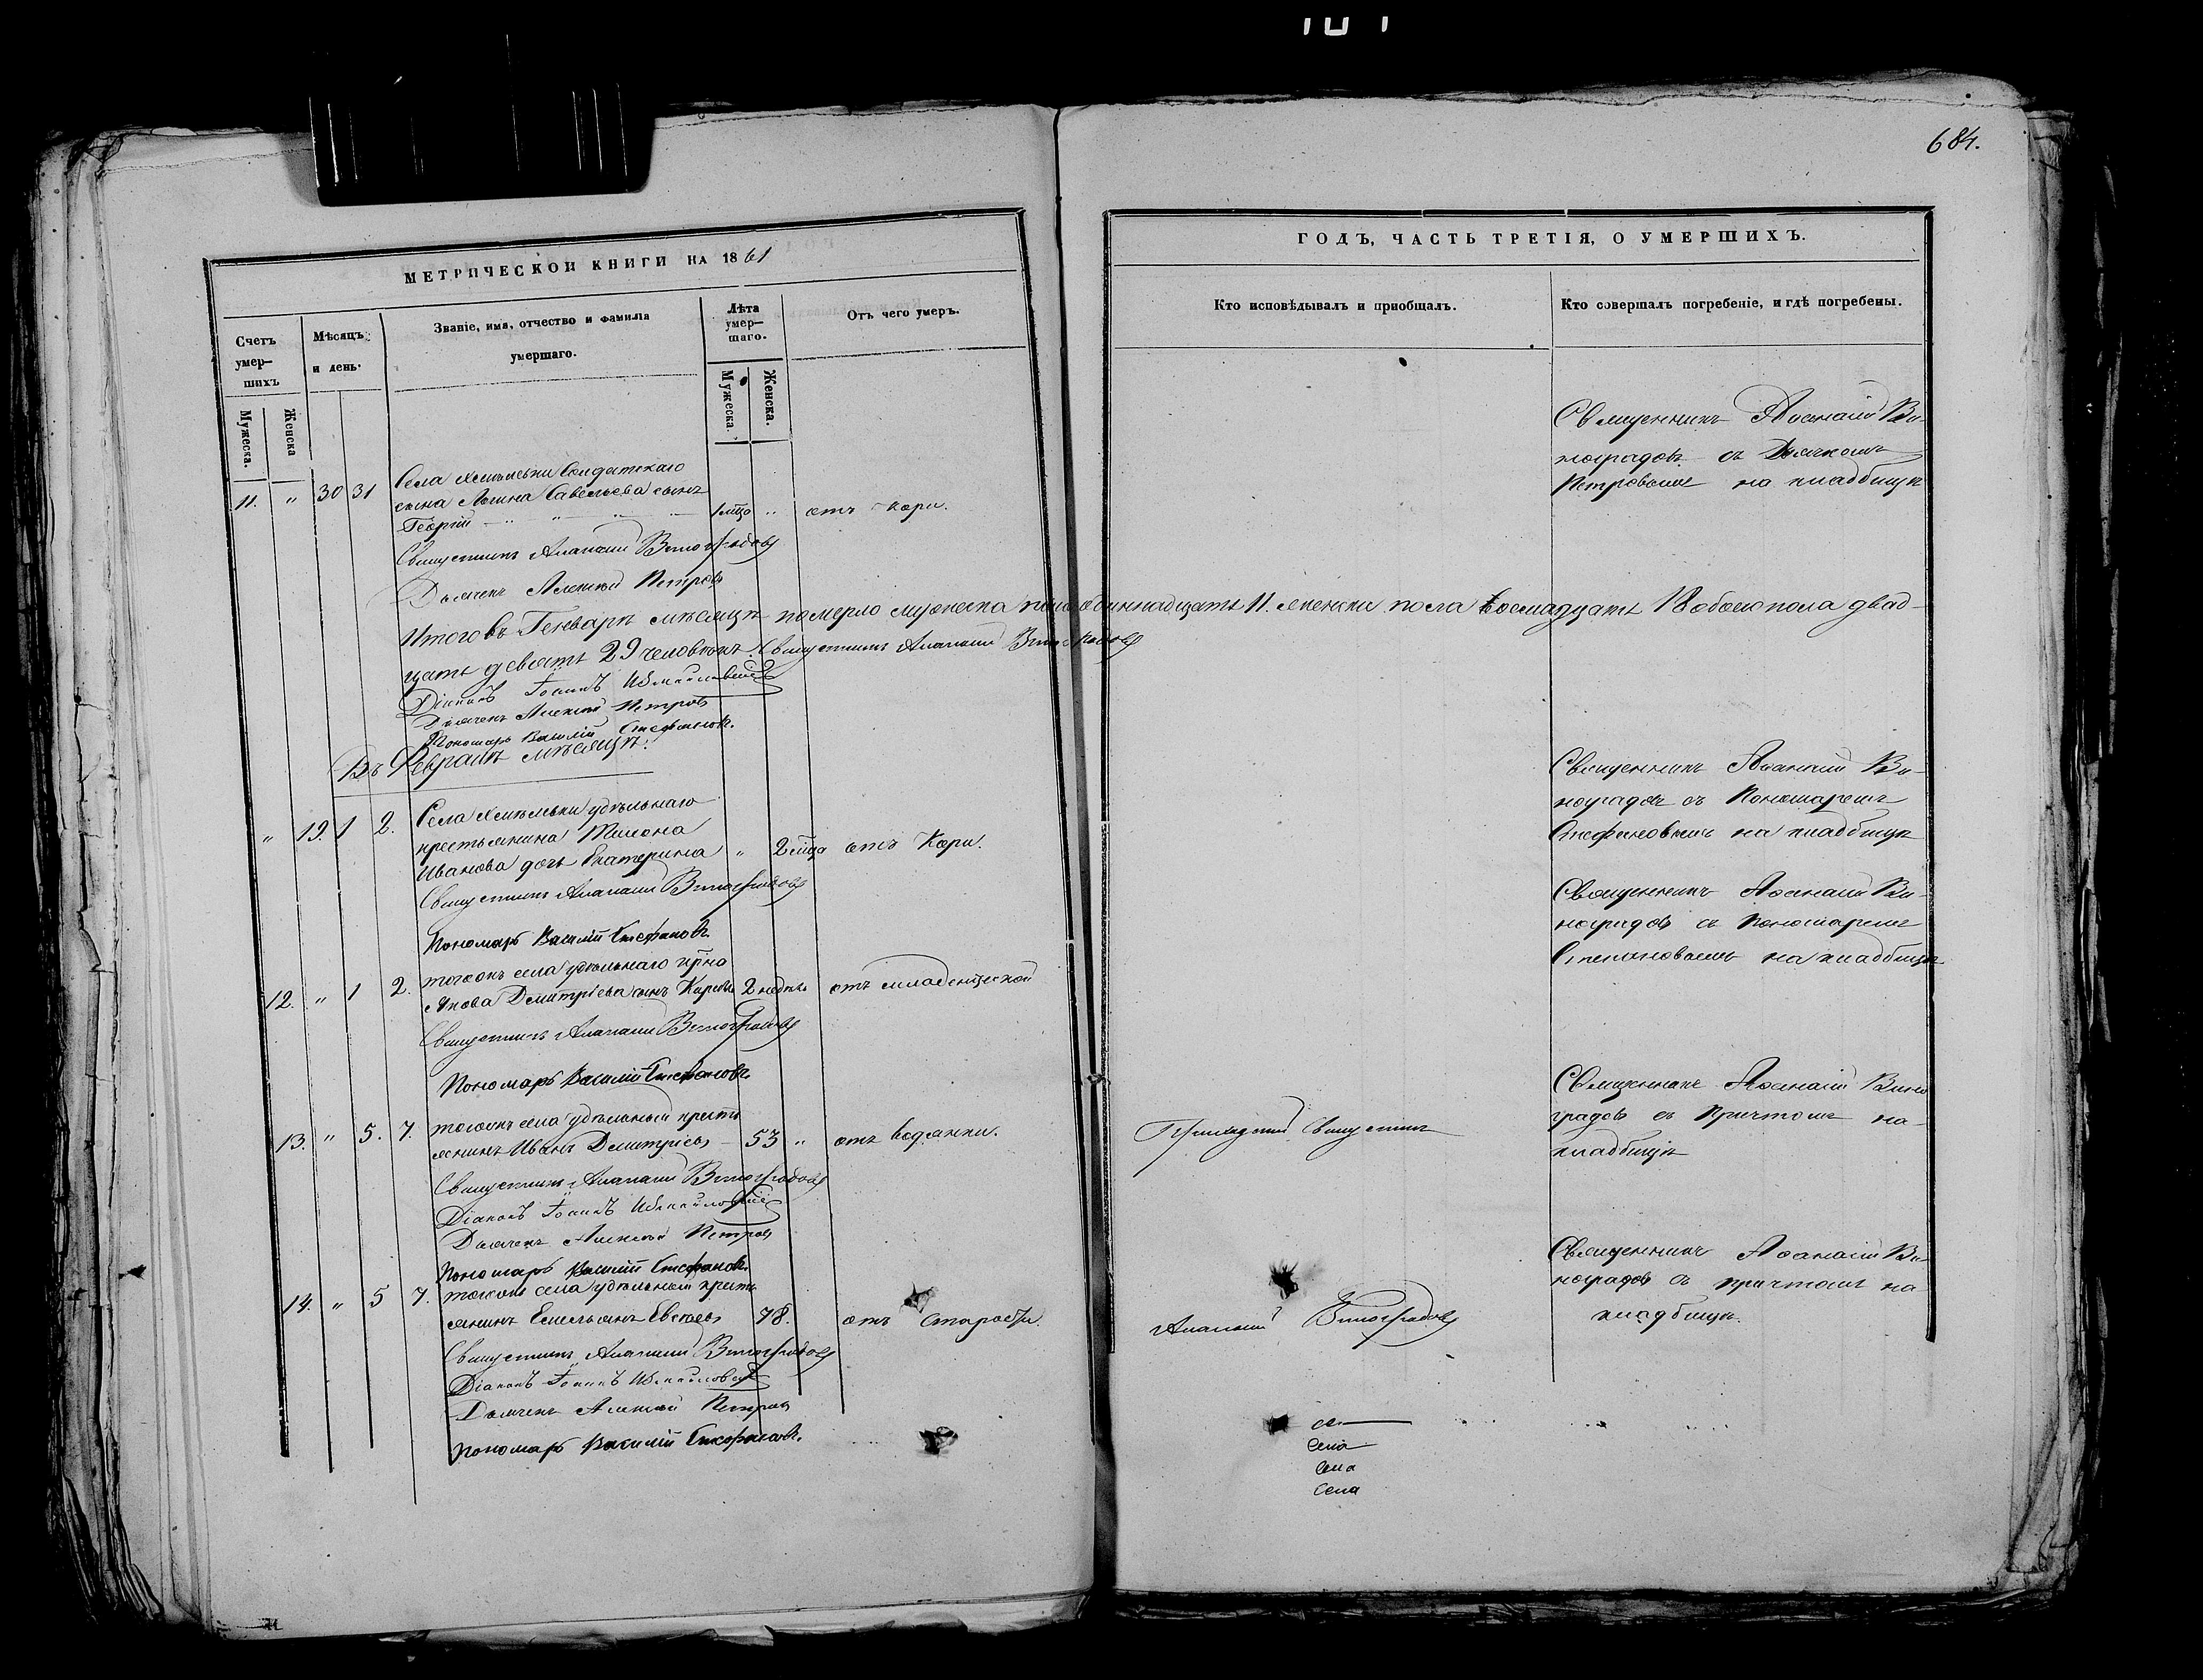 684.
МЕТРИЧЕСКОЙ КНИГИ НА 1861
ГОДЪ, ЧАСТЬ ТРЕТІЯ, О УМЕРШИХЪ.
Счетъ умер-
шихъ
Мѣсяцъ
и день.
Званіе, имя, отчество и фамилія
умершаго.
Лѣта
умер-
шаго.
Отъ чего умеръ.
Мужеска.
Женска
Мужеска.
Женска.
Кто исповѣдывалъ и пріобщалъ.
Кто совершалъ погребеніе, и гдѣ погребены.
Села Хмѣлевки Солдатскаго
11. " 30 31 сына Савельева сынъ
Георгій 1 мца " отъ кори.
Священникъ Аѳанасій Виноградовъ
Дьячекъ Алексѣй Петровъ
Священникъ Аѳанасій Ви-
ноградовъ съ Дьячкомъ
Петровымъ на кладбищѣ
Итого въ Генварѣ мѣсяцѣ померло мужеска пола одиннадцать 11. женска пола восемнадцать 18 обоего пола двад-
цать девять 29 человѣкъ. Священникъ Аѳанасій Виноградовъ
Діаконъ Іоаннъ Измайловскій
Дьячекъ Алексѣй Петровъ
Пономарь Василій Стефановъ.
Въ Февралѣ мѣсяцѣ.
Села Хмѣлевки удѣльнаго
" 19. 1 2. крестьянина
Иванова дочь Екатерина " 2 мца отъ Кори.
Священникъ Аѳанасій Виноградовъ
Пономарь Василій Стефановъ.
Священникъ Аѳанасій Ви-
ноградовъ съ Пономаремъ
Стефановымъ на кладбищѣ
тогожъ села удѣльнаго крѣна
12. " 1 2. Якова Дмитріева сынъ 2 недѣль отъ младенческой
Священникъ Аѳанасій Виноградовъ
Пономарь Василій Стефановъ.
Священникъ Аѳанасій Ви-
ноградовъ съ Пономаремъ
Стефановымъ на кладбищѣ
тогожъ села удѣльный кресть
13. " 5. 7. янинъ Иванъ Дмитріевъ 53 " отъ водянки.
Священникъ Аѳанасій Виноградовъ
Діаконъ Іоаннъ Измайловскій
Дьячекъ Алексѣй Петровъ
Пономарь Василій Стефановъ.
Приходскій Священникъ
Священникъ Аѳанасій Вино
градовъ съ Причтомъ на
кладбищѣ
тогожъ села удѣльный кресть
14. " 5 7. янинъ Емельянъ 78. отъ старости.
Священникъ Аѳанасій Виноградовъ
Діаконъ Іоаннъ Измайловскій
Дьячекъ Алексѣй Петровъ
Пономарь Василій Стефановъ.
Аѳанасій Виноградовъ
Священникъ Аѳанасій Ви-
ноградовъ съ причтомъ на
кладбищѣ.
Села
Села
Села